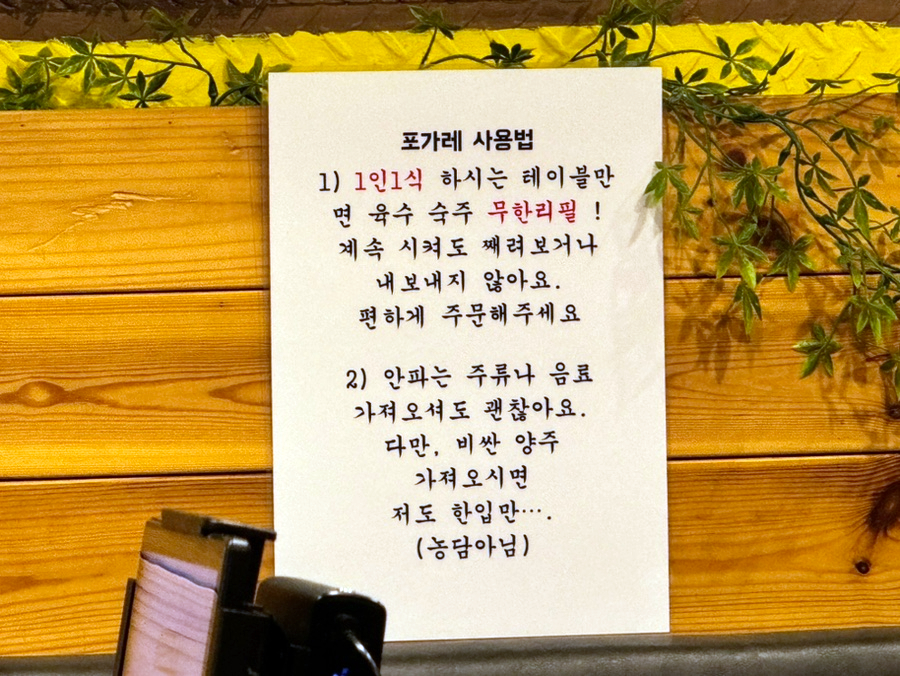 포가레 사용법
1) 1인1식 하시는 테이블만
면 육수 숙주 무한리필 !
계속 시켜도 째려보거나
내보내지 않아요.
편하게 주문해주세요
2) 안파는 주류나 음료
가져오셔도 괜찮아요.
다만, 비싼 양주
가져오시면
저도 한입만….
(농담아님)